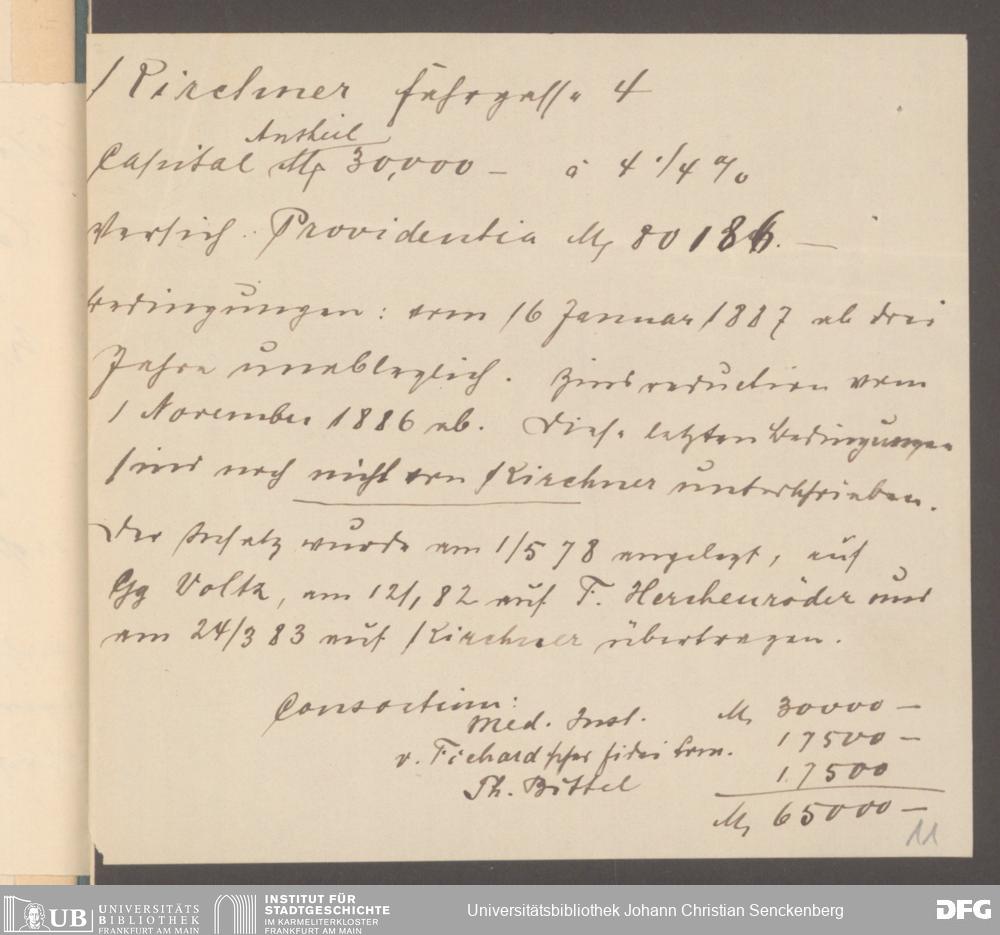 Kirchner Fahrgasse 4
Antheil
Capital M 30,000 – à 4 1/4 %
Versich. Providentia M 80186. –
Bedingungen: vom 16 Januar 1887 ab drei
Jahre unableglich. Zinsreduction vom
1 November 1886 ab. Diese letzten Bedingungen
sind noch nicht von Kirchner unterschrieben.
Der Insatz wurde am 1/5 78 angelegt, auf
Gg Voltz, am 12/1 82 auf F. Herchenröder und
am 24/3 83 auf Kirchner übertragen.
Consortium:
Med. Inst. M 30000 –
v. Fichard'sches Fidei Com. 17500 –
Ph. Büttel 17500
M 65000 –
11
UB UNIVERSITÄTS
BIBLIOTHEK
FRANKFURT AM MAIN
INSTITUT FÜR
STADTGESCHICHTE
IM KARMELITERKLOSTER
FRANKFURT AM MAIN
Universitätsbibliothek Johann Christian Senckenberg
DFG